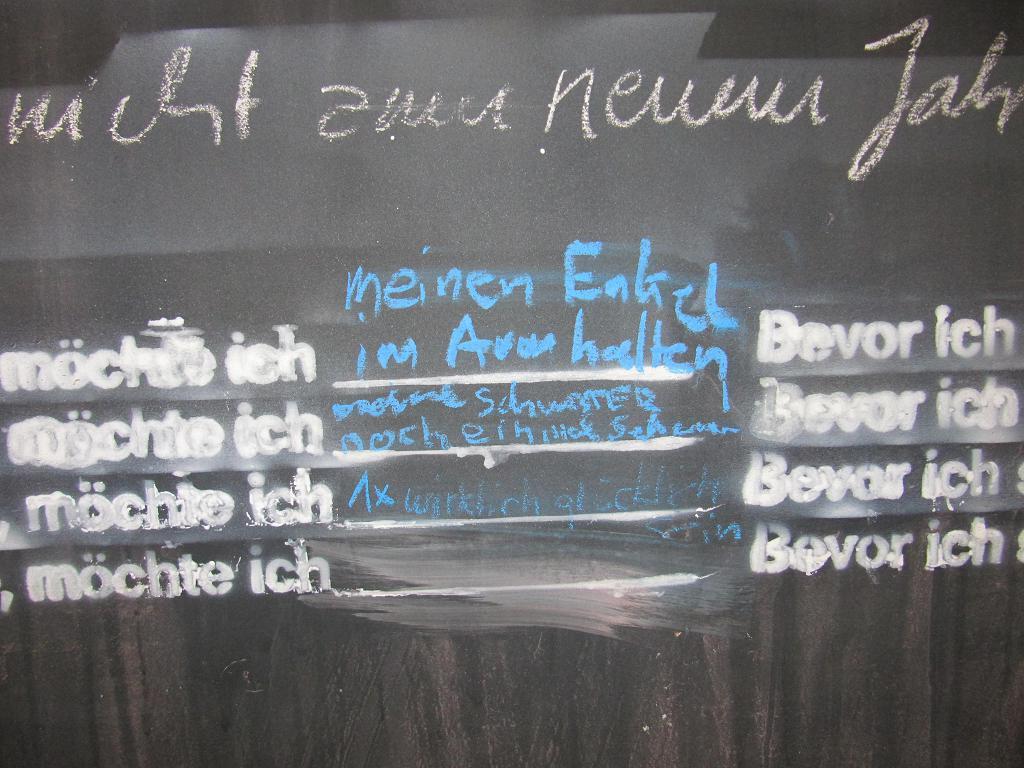 nicht zum neuen Jahr
meinen Enkel
möchte ich im Arm halten Bevor ich
möchte ich meine Schwester Bevor ich
noch einmal sehen
, möchte ich 1x wirklich glücklich Bevor ich s
sein
, möchte ich Bevor ich s